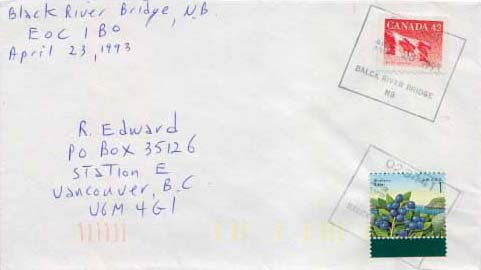 Black River Bridge, N.B.
E0C 1B0
April 23, 1993
CANADA 43
BALCK RIVER BRIDGE
NB
R. Edward
PO Box 35126
STATION E
Vancouver, B.C
V6M 4G1
1